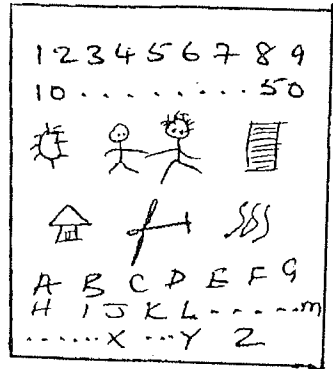 1 2 3 4 5 6 7 8 9
10 . . . . . . . . 50
A B C D E F G
H I J K L . . . . . . m
. . . . . . X . . . Y Z